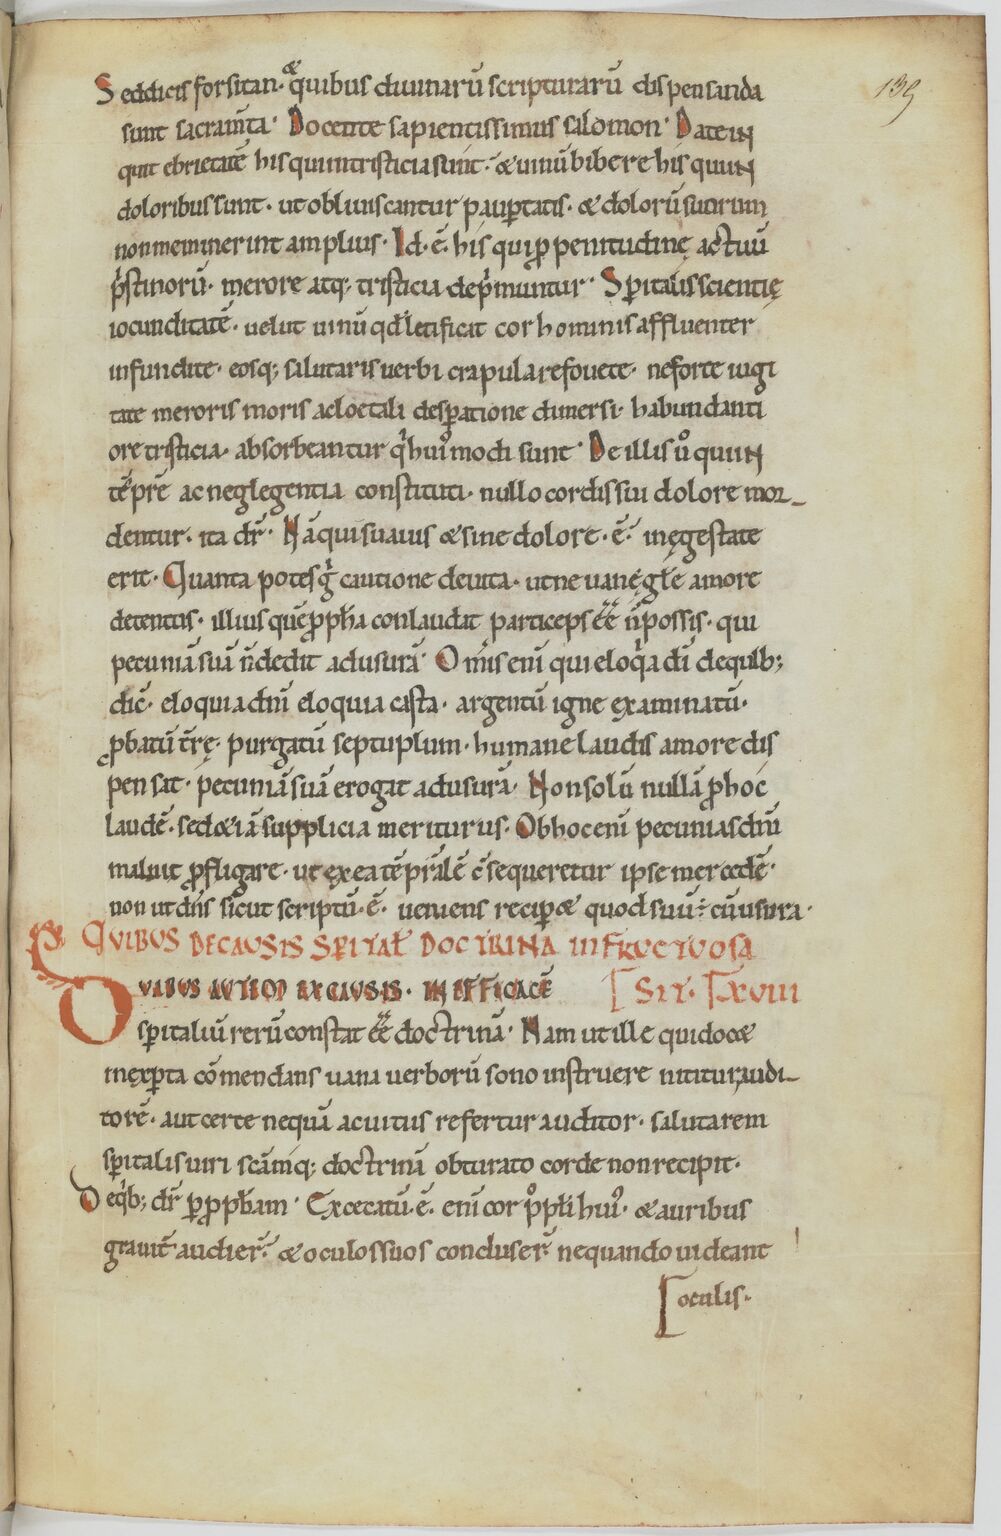 139
Sed dicis forsitan· & quibus diuinarū scripturarū dispensanda
sunt sacram̄ta· Docente sapientissimus salomon· Date in
quit ebrietatē his qui in tristicia sunt· & uinū bibere his qui in
doloribus sunt· ut obliuiscantur paup̄tatis· & dolorū suorum
non meminerint amplius· Id· ē· his qui p̄ penitudinę actuū
p̄stinorū· merore atq; tristicia dep̄muntur· Sp̄italis scientię
iocunditatē· uelut uinū qd̄ letificat cor hominis affluenter
infundite· eosq; salutaris uerbi crapula refouete· ne forte iugi
tate meroris moris ac loetali desp̄atione dimersi· habundanti
ore tristicia· absorbeantur q̄ huꝰmodi sunt· De illis ū qui in
tēp̄re ac neglegentia constituti· nullo cordis sui dolore mor
dentur· ita dr̄· Nā qui suauis & sine dolore· ē· in ęgestate
erit· Quanta potes g̊ cautione deuita· ut ne uanę gl̄e amore
detentus· illius quē p̄ph̄a conlaudat particeps ēē n̄ possis· qui
pecuniā suā n̄ dedit ad usurā· Om̄is enī qui eloq̄a dī de quib;
dic̄· eloquia dn̄i eloquia casta· argentū igne examinatū·
p̄batū tr̄ę· purgatū septuplum· humane laudis amore dis
pensat· pecuniā suā erogat ad usurā· Non solū nullā p̄ hoc
laudē· sed & iā supplicia meriturus· Ob hoc enī pecunias dn̄i
maluit p̄fligare· ut ex ea tēp̄alē c̄sequeretur ipse mercedē·
non ut dn̄s sicut scriptū· ē· ueniens recip̄& quod suū· ē· cū usura·
QUIBUS DE CAUSIS SP̄ITAL̄ DOCTRINA INFRUCTUOSA
SIT· XVIII
DUABUS AUTEM EX CAUSIS· INEFFICACĒ
sp̄italiū rerū constat ēē doctrinā· Nam ut ille qui doc&
inexp̄ta cōmendans uana uerborū sono instruere nititur audi
torē· aut certe nequā ac uitiis refertur auditor· salutarem
sp̄italis uiri scām̄q; doctrinā obturato corde non recipit·
De q̄b; dr̄ p̄ p̄ph̄am· Excecatū· ē· enī cor pp̄li huꝰ· & auribus
grauit̄ audier̄· & oculos suos concluser̄ ne quando uideant
oculis·